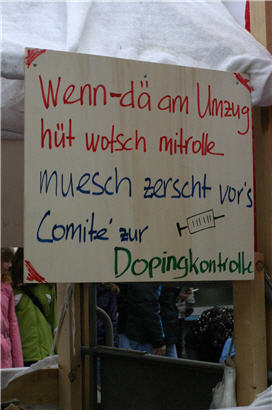 Wenn-dä am Umzug
hüt wotsch mitrolle
muesch zerscht vor's
Comité zur
Dopingkontrolle